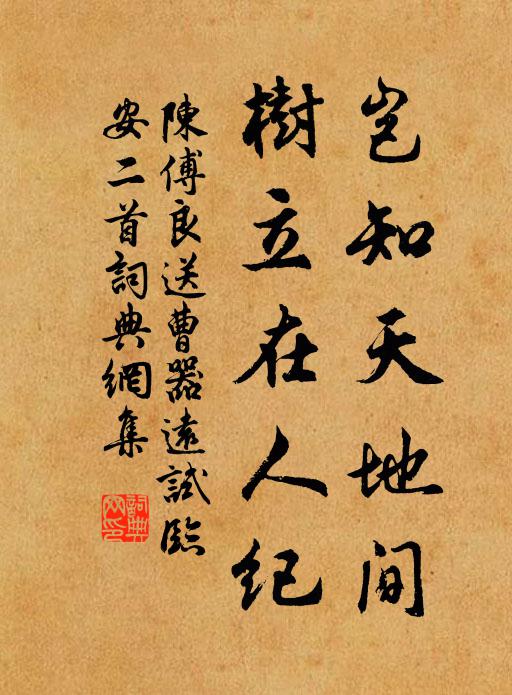 岂知天地间
樹立在人纪
陳傅良送曹器遠試臨
安二首詞典網集
詞典
网印